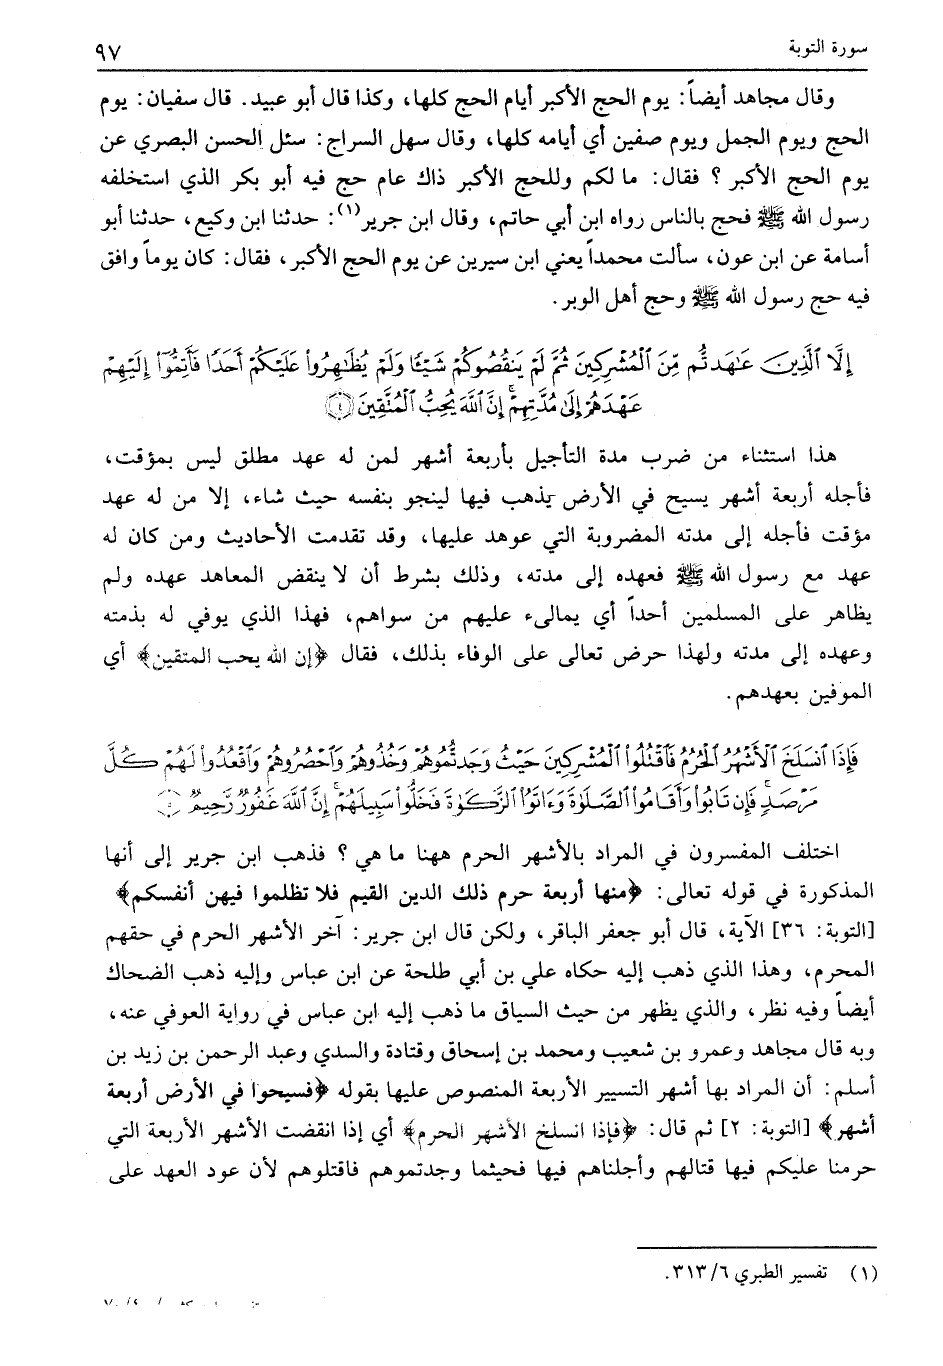 سورة التوبة ٩٧
وقال مجاهد أيضاً: يوم الحج الأكبر أيام الحج كلها، وكذا قال أبو عبيد. قال سفيان: يوم
الحج ويوم الجمل ويوم صفين أي أيامه كلها، وقال سهل السراج: سئل الحسن البصري عن
يوم الحج الأكبر؟ فقال: ما لكم وللحج الأكبر ذاك عام حج فيه أبو بكر الذي استخلفه
رسول الله ﷺ فحج بالناس رواه ابن أبي حاتم، وقال ابن جرير(١): حدثنا ابن وكيع، حدثنا أبو
أسامة عن ابن عون، سألت محمداً يعني ابن سيرين عن يوم الحج الأكبر، فقال: كان يوماً وافق
فيه حج رسول الله ﷺ وحج أهل الوبر.
إِلَّا ٱلَّذِينَ عَٰهَدتُّم مِّنَ ٱلْمُشْرِكِينَ ثُمَّ لَمْ يَنقُصُوكُمْ شَيْـًٔا وَلَمْ يُظَٰهِرُوا۟ عَلَيْكُمْ أَحَدًا فَأَتِمُّوٓا۟ إِلَيْهِمْ
عَهْدَهُمْ إِلَىٰ مُدَّتِهِمْ ۚ إِنَّ ٱللَّهَ يُحِبُّ ٱلْمُتَّقِينَ ﴿٤﴾
هذا استثناء من ضرب مدة التأجيل بأربعة أشهر لمن له عهد مطلق ليس بمؤقت،
فأجله أربعة أشهر يسيح في الأرض يذهب فيها لينجو بنفسه حيث شاء، إلا من له عهد
مؤقت فأجله إلى مدته المضروبة التي عوهد عليها، وقد تقدمت الأحاديث ومن كان له
عهد مع رسول الله ﷺ فعهده إلى مدته، وذلك بشرط أن لا ينقض المعاهد عهده ولم
يظاهر على المسلمين أحداً أي يمالىء عليهم من سواهم، فهذا الذي يوفي له بذمته
وعهده إلى مدته ولهذا حرض تعالى على الوفاء بذلك، فقال ﴿إن الله يحب المتقين﴾ أي
الموفين بعهدهم.
فَإِذَا ٱنسَلَخَ ٱلْأَشْهُرُ ٱلْحُرُمُ فَٱقْتُلُوا۟ ٱلْمُشْرِكِينَ حَيْثُ وَجَدتُّمُوهُمْ وَخُذُوهُمْ وَٱحْصُرُوهُمْ وَٱقْعُدُوا۟ لَهُمْ كُلَّ
مَرْصَدٍ ۚ فَإِن تَابُوا۟ وَأَقَامُوا۟ ٱلصَّلَوٰةَ وَءَاتَوُا۟ ٱلزَّكَوٰةَ فَخَلُّوا۟ سَبِيلَهُمْ ۚ إِنَّ ٱللَّهَ غَفُورٌ رَّحِيمٌ ﴿٥﴾
اختلف المفسرون في المراد بالأشهر الحرم ههنا ما هي؟ فذهب ابن جرير إلى أنها
المذكورة في قوله تعالى: ﴿منها أربعة حرم ذلك الدين القيم فلا تظلموا فيهن أنفسكم﴾
[التوبة: ٣٦] الآية، قال أبو جعفر الباقر، ولكن قال ابن جرير: آخر الأشهر الحرم في حقهم
المحرم، وهذا الذي ذهب إليه حكاه علي بن أبي طلحة عن ابن عباس وإليه ذهب الضحاك
أيضاً وفيه نظر، والذي يظهر من حيث السياق ما ذهب إليه ابن عباس في رواية العوفي عنه،
وبه قال مجاهد وعمرو بن شعيب ومحمد بن إسحاق وقتادة والسدي وعبد الرحمن بن زيد بن
أسلم: أن المراد بها أشهر التسيير الأربعة المنصوص عليها بقوله ﴿فسيحوا في الأرض أربعة
أشهر﴾ [التوبة: ٢] ثم قال: ﴿فإذا انسلخ الأشهر الحرم﴾ أي إذا انقضت الأشهر الأربعة التي
حرمنا عليكم فيها قتالهم وأجلناهم فيها فحيثما وجدتموهم فاقتلوهم لأن عود العهد على
(١) تفسير الطبري ٣١٣/٦.